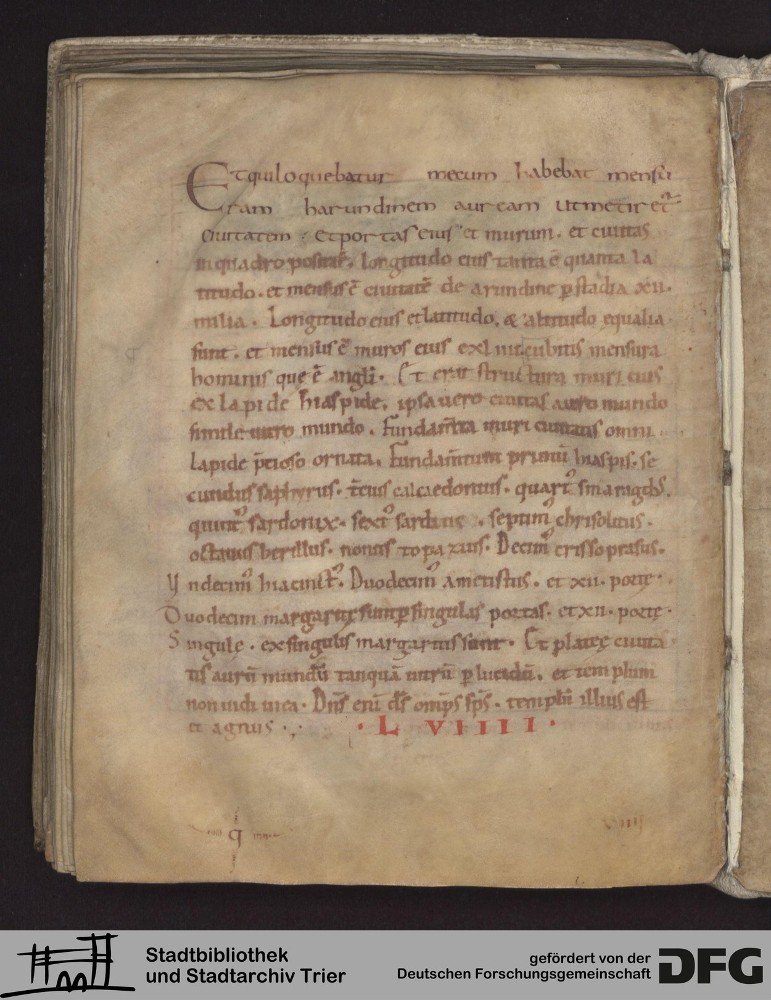 Et qui loquebatur mecum habebat mensu
ram harundinem auream ut metiret᷑
ciuitatem · et portas eius et murum · et ciuitas
in quadro posita ē · longitudo eius tanta ē quanta la
titudo · et mensus ē ciuitatē de arundine p̲ stadia xii ·
milia · Longitudo eius et latitudo, & altitudo equalia
sunt · et mensus ē muros eius cxl iiii cubitis mensura
hominis que ē angłi · Et erat structura muri eius
ex lapide hiaspide, ipsa uero ciuitas auro mundo
simile uitro mundo . Fundam̄ta muri ciuitatis omni
lapide p̄tioso ornata . Fundam̄tum primū hiaspis · se
cundus saphyrus · t̄cius calcaedonius · quart᷒ smaragdꝰ ·
quint᷒ sardonix · sext᷒ sardius · septim᷒ chrisolitus ·
octauus berillus · nonus topazius · Decim᷒ crissoprasus ·
Vndecim᷒ hiacinct᷒ · Duodecim᷒ ametistus · et xii · portę ·
Duodecim margaritę sunt p̲ singulas portas · et xii · portę ·
Singulę · ex singulis margaritis sunt · Et plateę ciuita
tis aurū mundū tanquā uitrū p̲lucidū, et templum
non uidi in ea · Dn̄s enī d̄s omp̄s sp̄s · templū illius est
et agnus ·
· L VIIII ·
q
VIIII
Stadtbibliothek
und Stadtarchiv Trier
gefördert von der
Deutschen Forschungsgemeinschaft
DFG